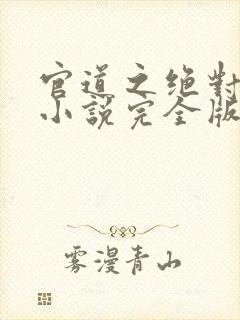 官道之绝對
小說完全版
雾漫青山